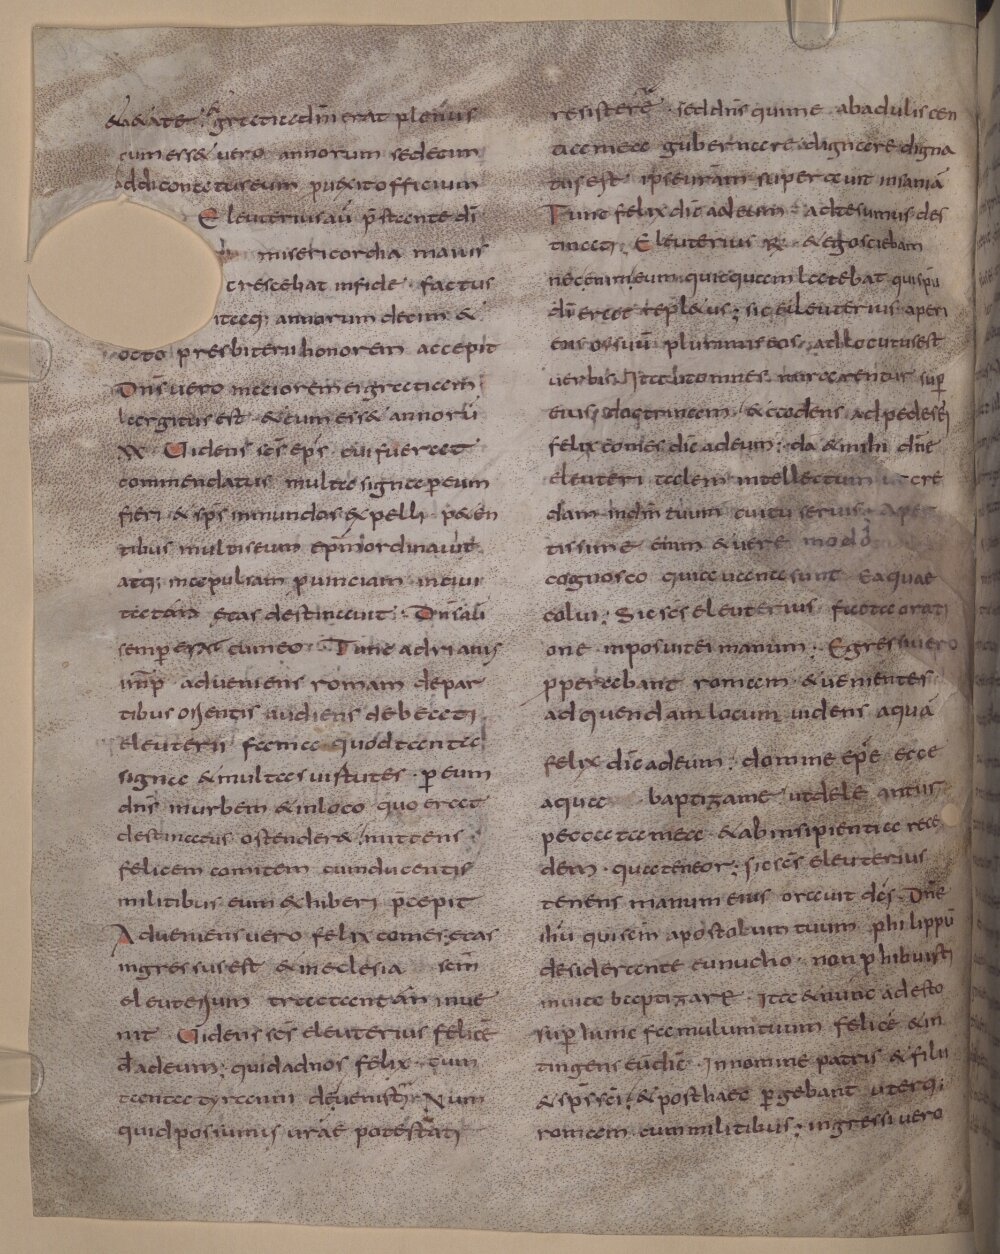 & aetate & gratia dn̄i erat plenus
cum ess& vero annorum sedecim
addiconatus eum pue&it officium
Eleuterius aū p̄stante dī
misericordia maius
crescebat in fide factus
itaq; annorum decim &
octo presbiterii honorem accepit
Dn̄s vero maiorem ei gratiam
largitus est & cum ess& annorū
xx Videns sc̄s ep̄s cui fuerat
commendatus multa signa p eum
fieri & sp̄s inmundos expelli p&en
tibus multis eum ep̄m ordinavit
atq; in apuliam p̄vinciam in civi
tatem ecas destinavit Dn̄s aū
semp er& cum eo Tunc adrianus
imp̄ adveniens romam de par
tibus orientis audiens de beati
eleuterii fama quod tanta
signa & multas virtutes p eum
dn̄s in urbem & in loco quo erat
destinatus ostender& mittens
felicem comitem cum ducentis
militibus eum exhiberi p̄cepit
Adveniens vero felix comes ecas
ingressus est & in eclesia sc̄m
eleuterium tractantem inve
nit Videns sc̄s eleuterius felicē
d̄ ad eum; quid ad nos felix tum
tanta tyrannum devenisti Num
quid possumus virae potestati
resistere sed dn̄s qui me ab aduliscen
tia mea gubernare dignare digna
tus est ipse vrām superavit insaniā
Tunc felix dic̄ ad eum adtesumus des
tinati; Eleuterius R̄ & ego sciebam
nam eum quicquam latebat qui sp̄u
dī erat repl&us; sic eleuterius aperi
ens os suū plurimis eos adlocutus est
verbis Ita ut omnes mirarentur sup
eius doctrinam & accedens ad pedes ei
felix comes dic̄ ad eum; da & mihi dn̄e
eleuteri talem intellectum ut cre
dam in dm̄ tuum cui tu servis Aper
tissime enim & vere modo
cognosco quia vacua sunt ea quae
colui; Sic sc̄s eleuterius facta orati
one inposuit ei manum; Egressi vero
pperabant romam & venientes
ad quendam locum videns aquā
felix dic̄ ad eum; domine ep̄e ecce
aqua baptiza me ut deleantur
peccata mea & ab insipientia rece
dam qua teneor; sic sc̄s eleuterius
tenens manum eius oravit dicens Dn̄e
ih̄u qui sc̄m apostolum tuum philippū
desiderante eunucho non phibuisti
in via baptizare Ita & nunc adesto
sup hunc famulum tuum felicē & in
tingens eum dic̄ In nomine patris & filii
& sp̄s sc̄i; & post haec pgebant uterq;
romam cum militibus; ingressi vero